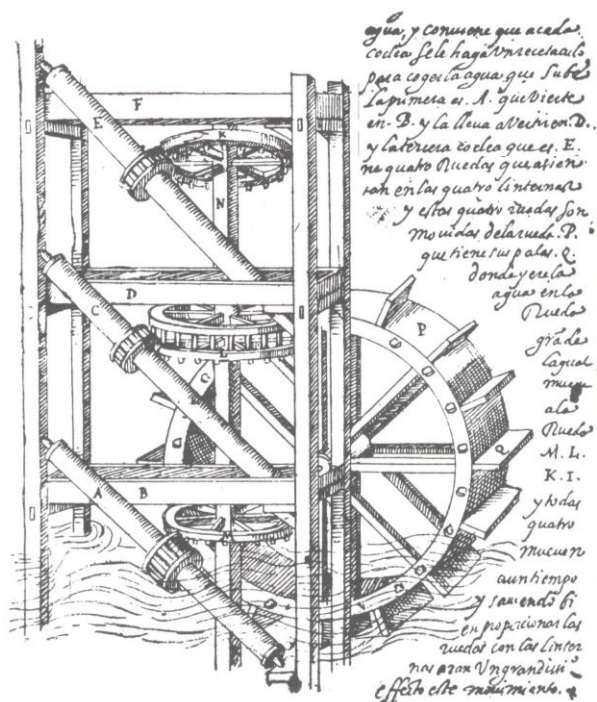 agua, y conuiene que a cada
coclea se le haga Vn receptaculo
para coger la agua que sube
la primera es. A. que Vierte
en. B. y la lleua a Vecino. D.
y la tercera coclea que es. E.
ne quatro Ruedas que asien
tan en las quatro linternas
y estas quatro ruedas son
mouidas de la rueda. P.
que tiene sus palas. Q.
donde yere la
agua en la
Rueda
grāde
la qual
mueue
a la
Rueda
M. L.
K. I.
y todas
quatro
mueuen
a un tiempo
y sauiendo bi
en proporcionar las
ruedas con las linter
nas aran Vn grandissi
effecto este mouimiento.
F
E
K
N
D
C
P
L
G
Q
A
B
M